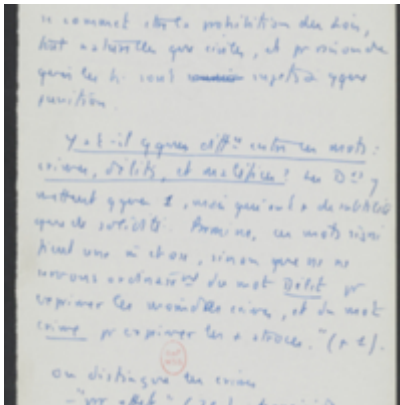 se commet contre la prohibition des Lois,
tant naturelles que civiles, et pr raison de
quoi les h. sont sujets à qque
punition.
Y a-t-il qques diffces entre les mots :
crimes, délits, et maléfices ? Les Drs y
mettent qques 1, mais qui ont + de subtilité
que de solidité. Parmi ns, ces mots signi
fient une m chose, sinon que ns ns
servons ordinairemt du mot Délit pr
exprimer les moindres crimes, et du mot
crime pr exprimer les + atroces." (p 2).
On distingue les crimes